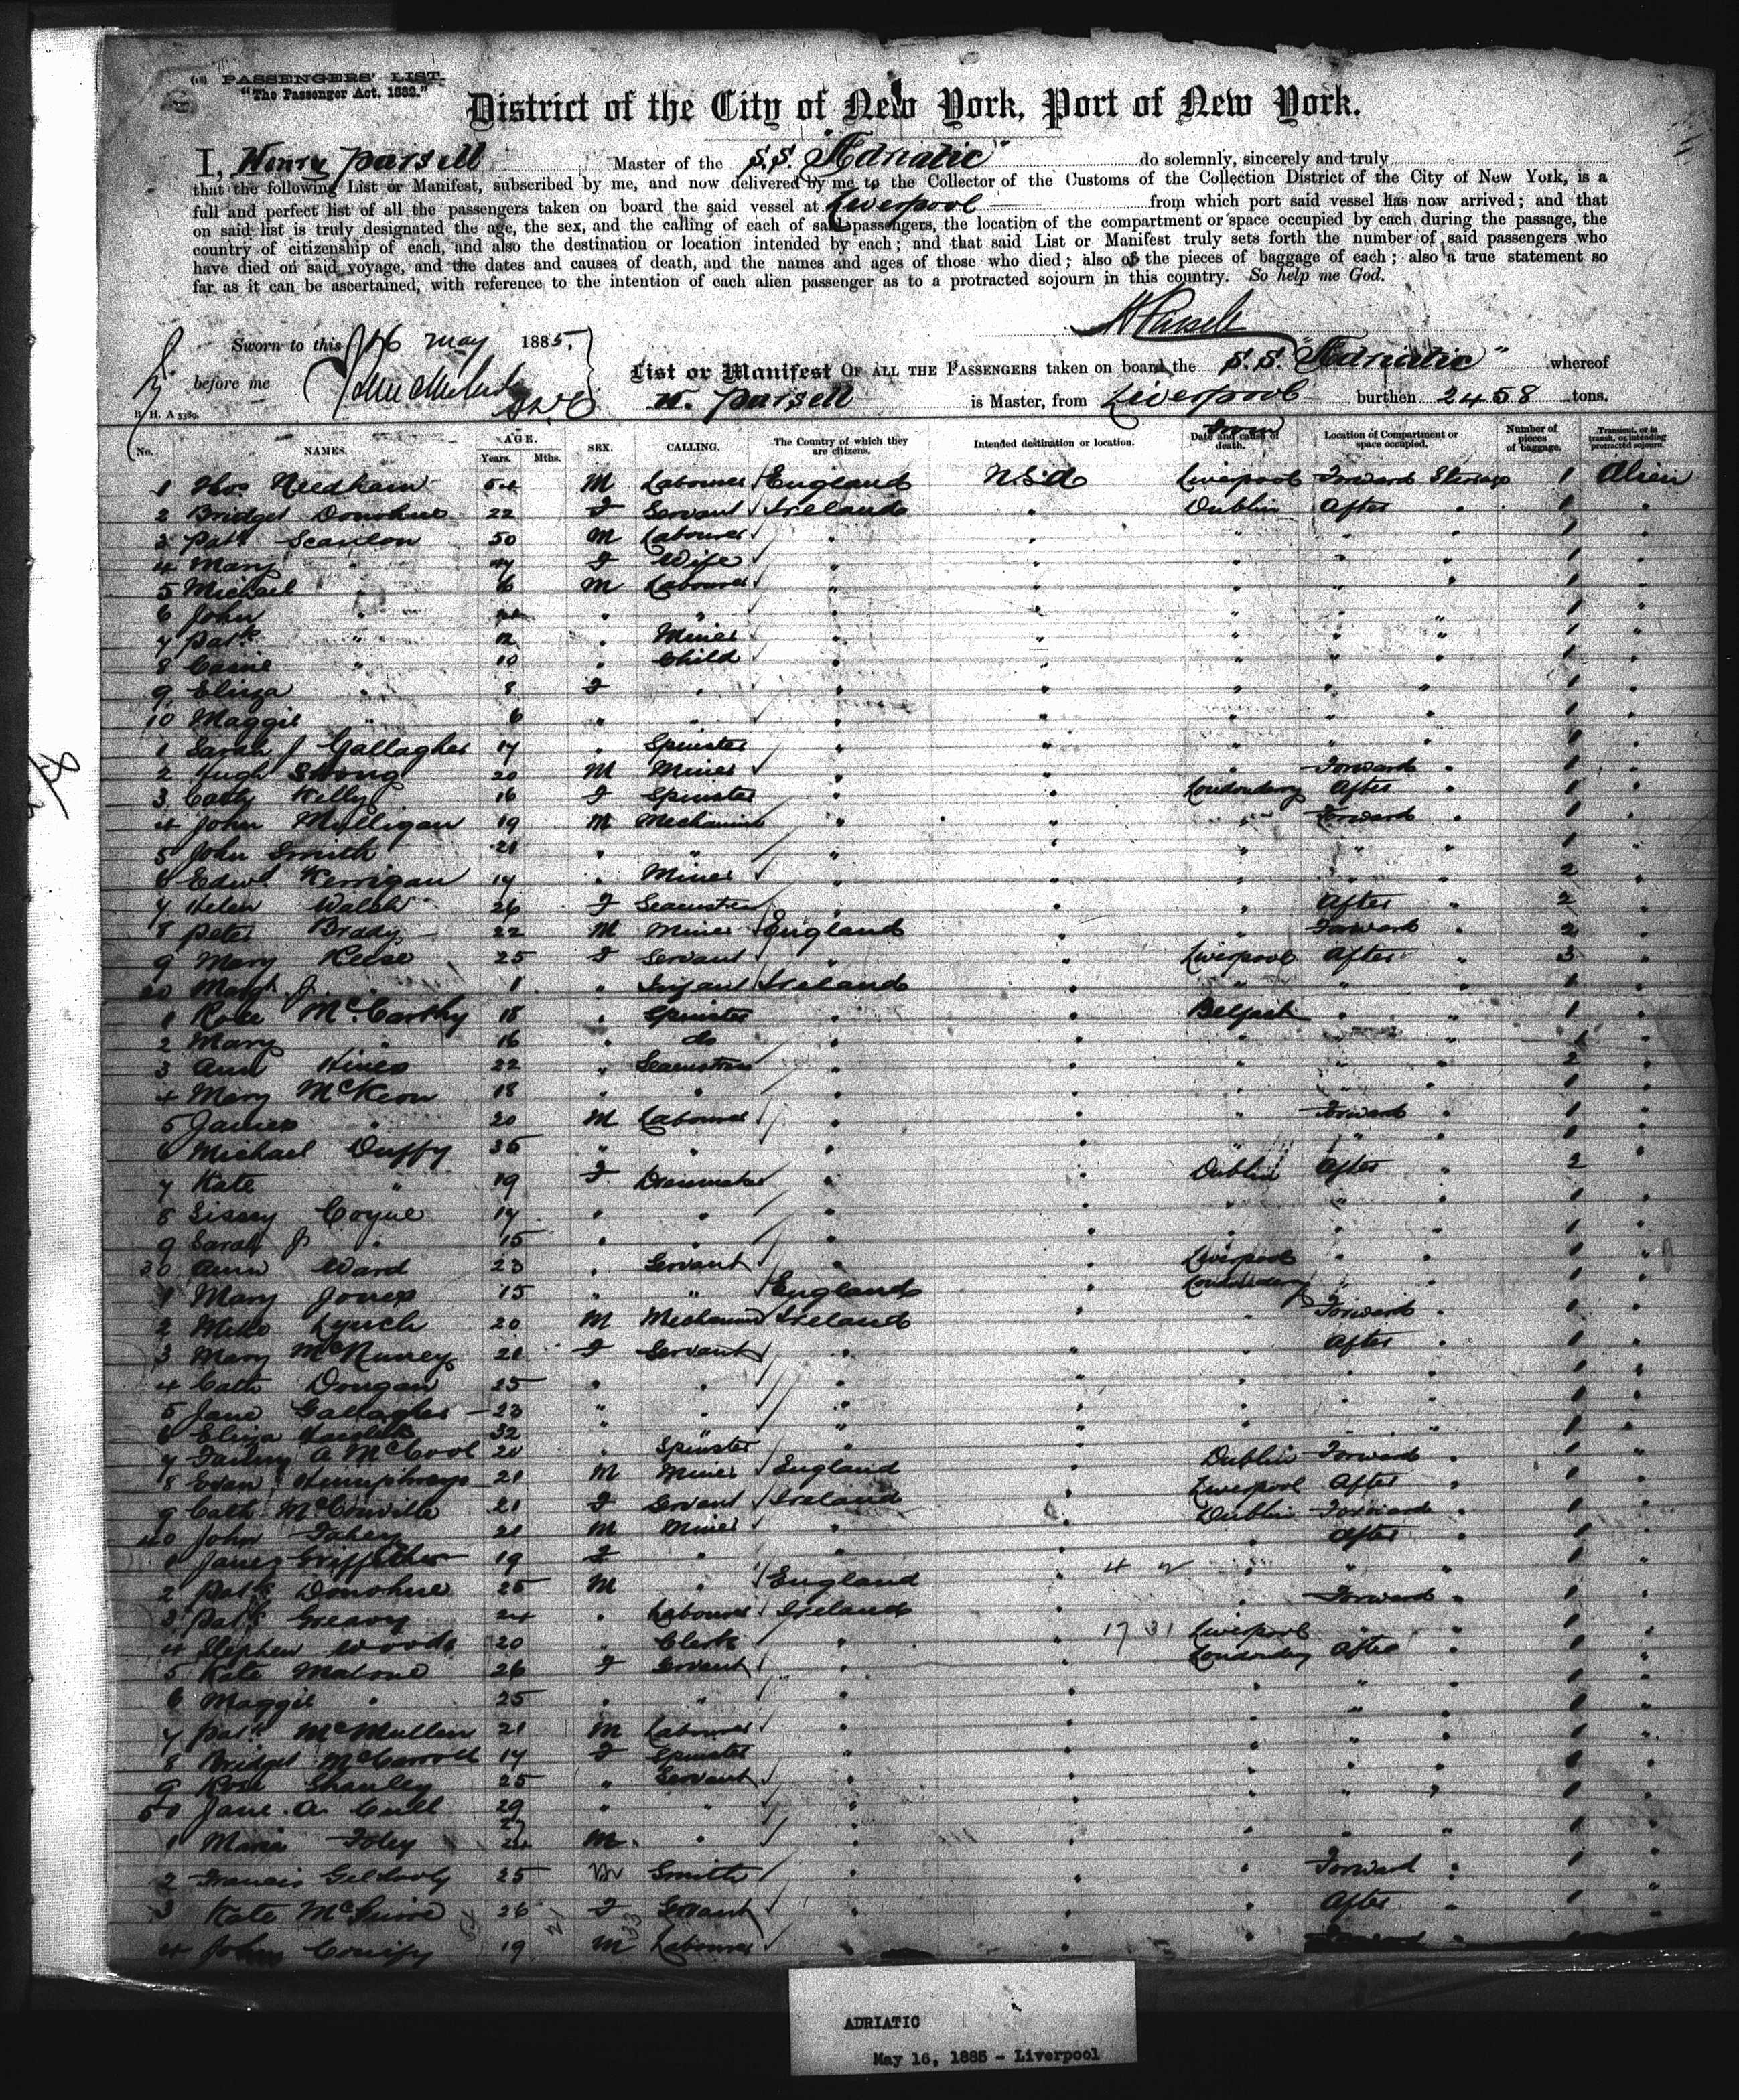 (18) PASSENGERS' LIST.
"The Passenger Act. 1882."
District of the City of New York, Port of New York.
I, Henry Parsell Master of the S.S. "Adriatic" do solemnly, sincerely and truly
that the following List or Manifest, subscribed by me, and now delivered by me to the Collector of the Customs of the Collection District of the City of New York, is a
full and perfect list of all the passengers taken on board the said vessel at Liverpool from which port said vessel has now arrived; and that
on said list is truly designated the age, the sex, and the calling of each of said passengers, the location of the compartment or space occupied by each during the passage, the
country of citizenship of each, and also the destination or location intended by each; and that said List or Manifest truly sets forth the number of said passengers who
have died on said voyage, and the dates and causes of death, and the names and ages of those who died; also of the pieces of baggage of each; also a true statement so
far as it can be ascertained, with reference to the intention of each alien passenger as to a protracted sojourn in this country. So help me God.
H Parsell
Sworn to this 16 May 1885,
before me
List or Manifest OF ALL THE PASSENGERS taken on board the S.S. "Adriatic" whereof
H. Parsell is Master, from Liverpool burthen 2458 tons.
No. NAMES. AGE. Years. Mths. SEX. CALLING. The Country of which they are citizens. Intended destination or location. Date and cause of death. From Location of Compartment or space occupied. Number of pieces of baggage. Transient, or in transit, or intending protracted sojourn.
1 Thos Needham 54 M Labourer England U.S.A Liverpool Forward Steerage 1 Alien
2 Bridget Donohue 22 F Servant Ireland " Dublin After " 1 "
3 Patk Scanlon 50 M Labourer " " " " " 1 "
4 Mary " F Wife " " " " " 1 "
5 Michael " 16 M Labourer " " " " " 1 "
6 John " " " " " " " " 1 "
7 Patk " 12 " Miner " " " " " 1 "
8 " 10 " Child " " " " " 1 "
9 Eliza " 8 F " " " " " " 1 "
10 Maggie " 6 " " " " " " " 1 "
1 Sarah J Gallagher 17 " Spinster " " " " " 1 "
2 Hugh Strong 20 M Miner " " " Forward " 1 "
3 Cath Kelly 16 F Spinster " " Londonderry After " 1 "
4 John Mulligan 19 M Mechanic " " " Forward " 1 "
5 John Smith 21 " " " " " " " 1 "
6 Edwd Kerrigan 17 " Miner " " " " " 2 "
7 Helen Walsh 26 F Seamstress " " " After " 2 "
8 Peter Brady 22 M Miner England " " Forward " 2 "
9 Mary Keese 25 F Servant " " Liverpool After " 3 "
20 Margt J. " 1 " Infant Ireland " " " " 1 "
1 Rose McCarthy 18 " Spinster " " Belfast " " 1 "
2 Mary " 16 " do " " " " " 1 "
3 Ann Hines 22 " Seamstress " " " " " 2 "
4 Mary McKeon 18 " " " " " " " 1 "
5 James " 20 M Labourer " " " Forward " 1 "
6 Michael Duffy 36 " " " " " " " 1 "
7 Kate " 19 F Dressmaker " " Dublin After " 2 "
8 Sissey Coyne 17 " " " " " " " 1 "
9 Sarah J " 15 " " " " " " " 1 "
30 Ann Ward 23 " Servant " " Liverpool " " 1 "
1 Mary Jones 15 " " England " Londonderry " " 1 "
2 Mike Lynch 20 M Mechanic Ireland " " Forward " 1 "
3 Mary 21 F Servant " " " After " 1 "
4 Cath Dougan 25 " " " " " " " 1 "
5 Jane Gallagher 23 " " " " " " " 1 "
6 Eliza 32 " " " " " " " 1 "
7 Fanny A McCool 20 " Spinster " " Dublin Forward " 1 "
8 Evan Humphreys 21 M Miner England " Liverpool After " 1 "
9 Cath McConville 21 F Servant Ireland " Dublin Forward " 1 "
40 John Fahey 21 M Miner " " " After " 1 "
1 James Griffiths 19 F " " " " " " 1 "
2 Patk Donohue 25 M " England " " Forward " 1 "
3 Patk Greavy 24 " Labourer Ireland " Liverpool " " 1 "
4 Stephen Woods 20 " Clerk " " Londonderry After " 1 "
5 Kate Malone 26 F Servant " " " " " 1 "
6 Maggie " 25 " " " " " " " 1 "
7 Patk McMullen 21 M Labourer " " " " " 1 "
8 Bridget McCarroll 17 F Spinster " " " " " 1 "
9 Rose Shanley 25 " Servant " " " " " 1 "
50 Jane A. Cull 29 " " " " " " " 1 "
1 Maria Foley M " " " " " " 1 "
2 Francis Gilhooly 25 M Smith " " " Forward " 1 "
3 Kate McGuire 26 F Servant " " " After " 1 "
4 John 19 M Labourer " " " Forward " 1 "
ADRIATIC
May 16, 1885 - Liverpool